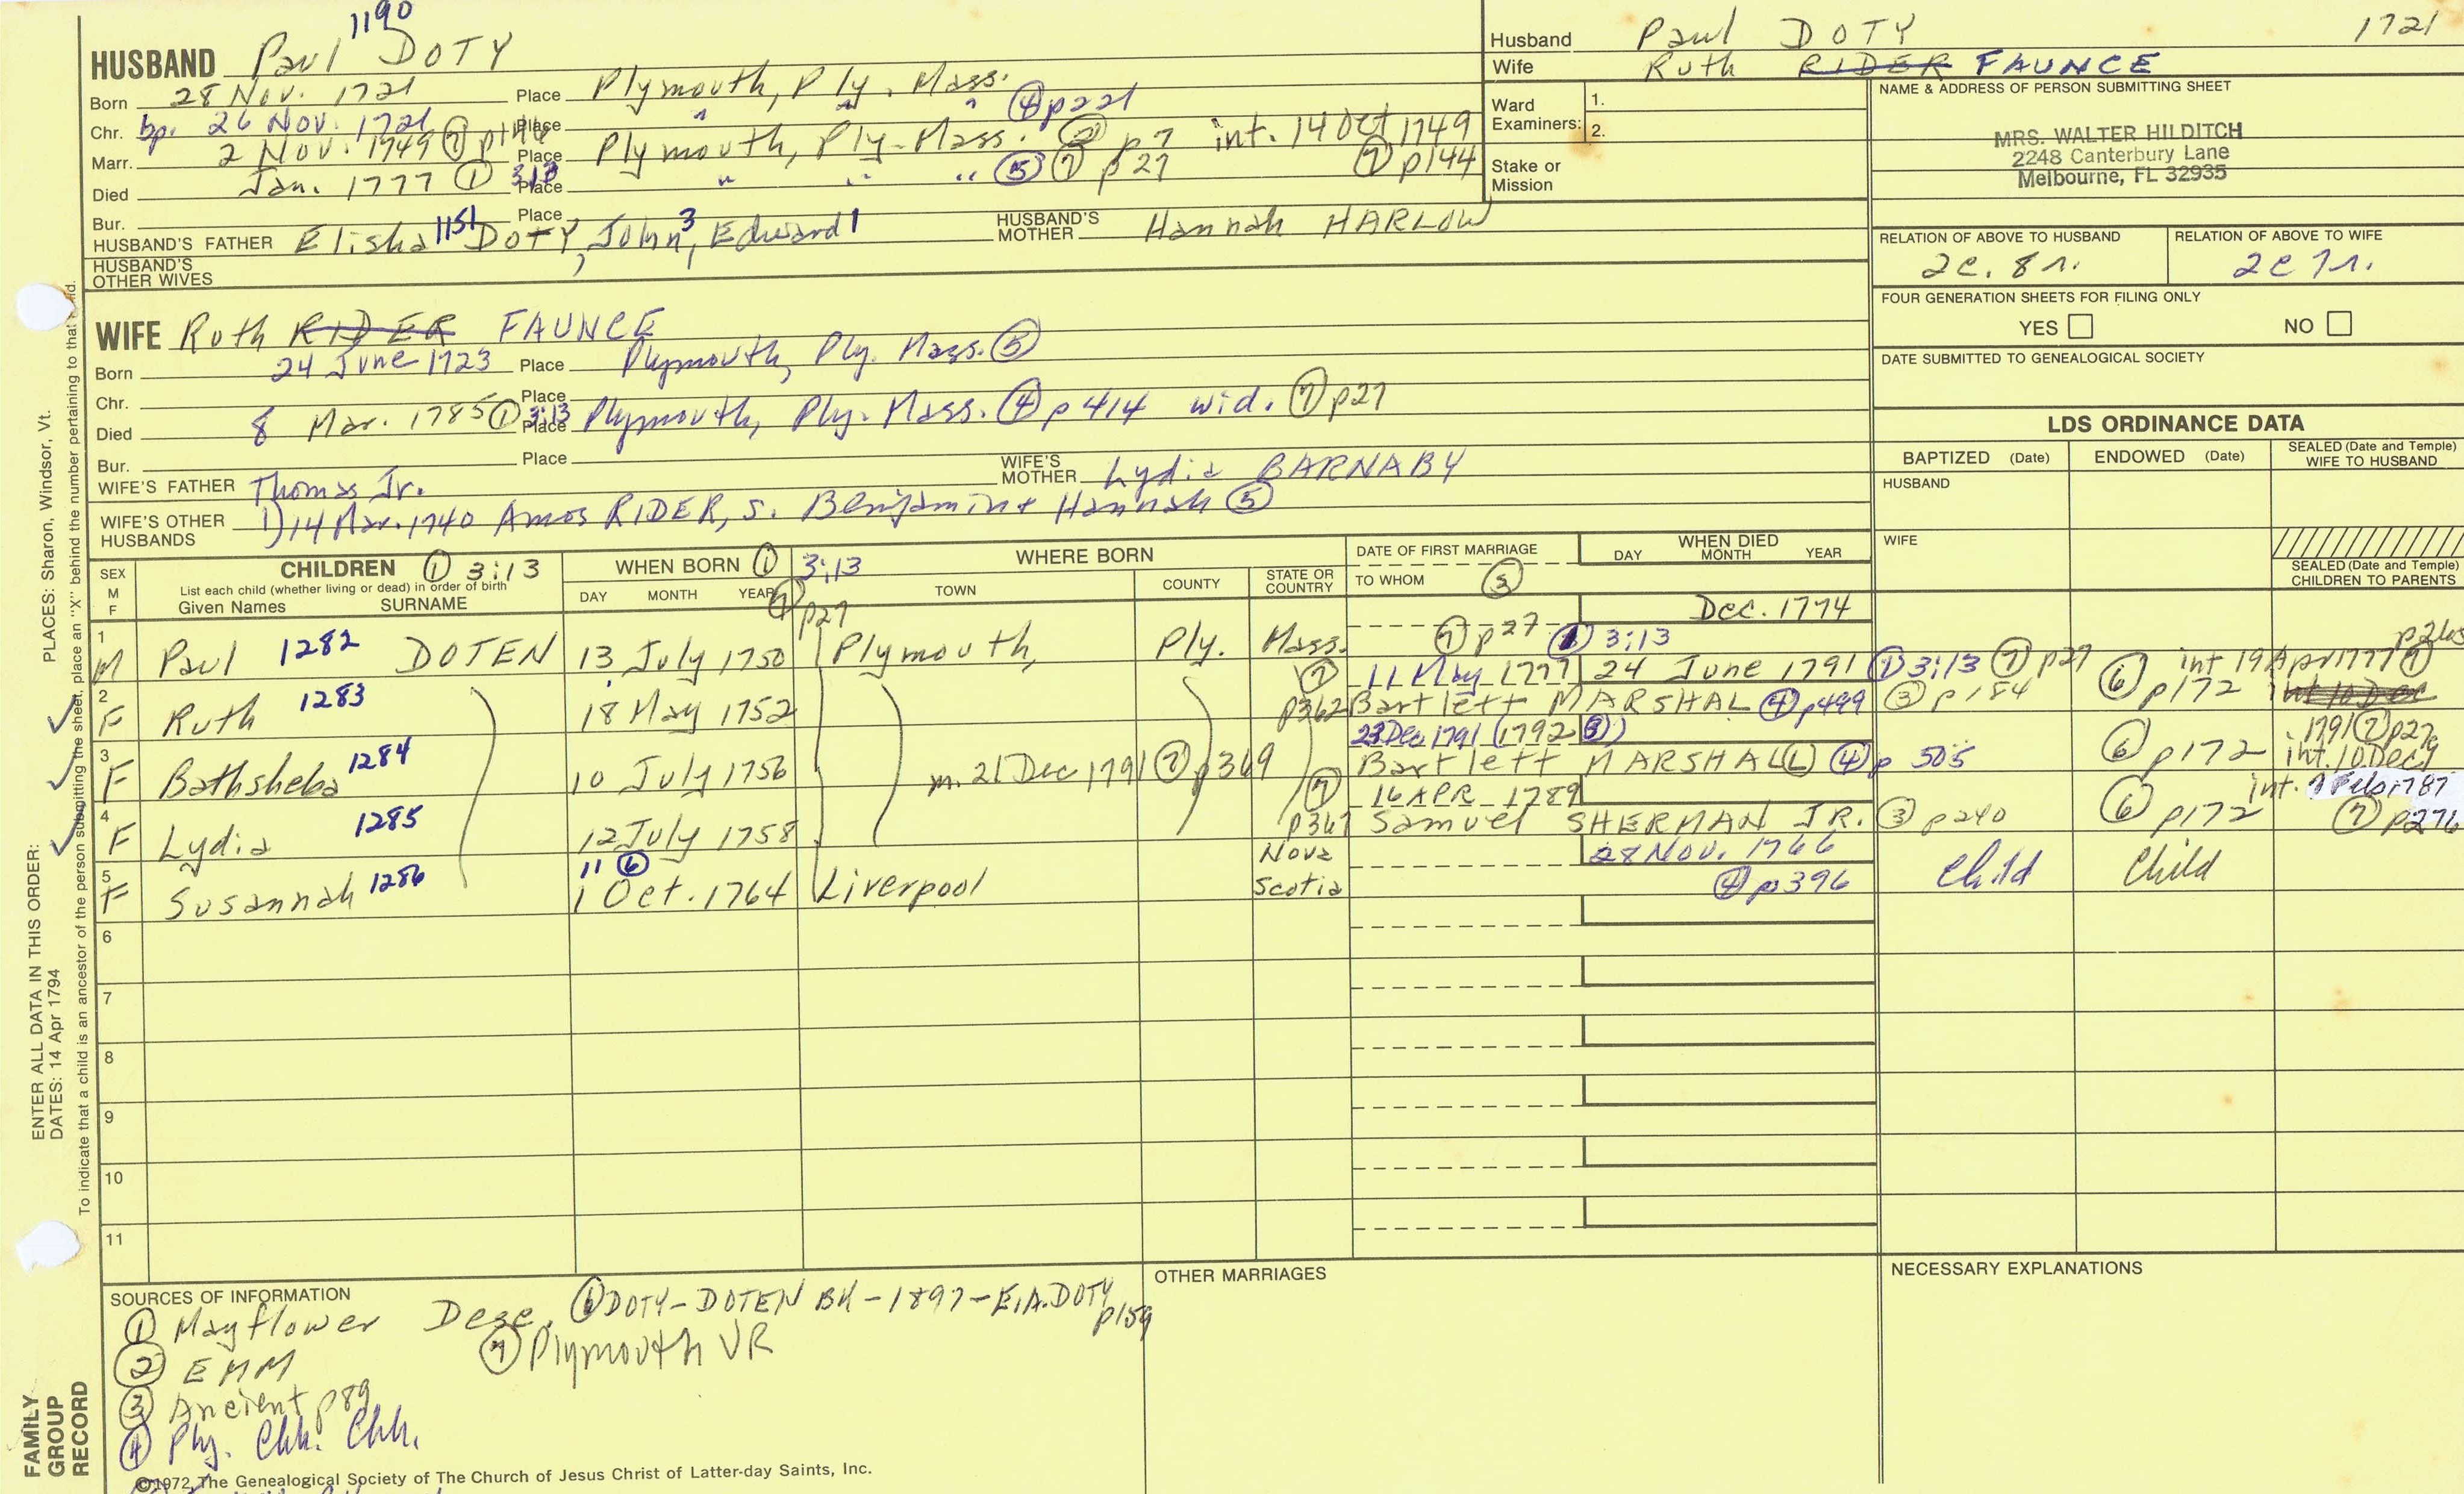 1190
HUSBAND Paul DOTY
Born 28 Nov. 1721 Place Plymouth, Ply. Mass.
Chr. bp. 26 Nov. 1721 Place " " " ④ p221
Marr. 2 Nov. 1749 ⑦ Place Plymouth, Ply. Mass. ② p7 int. 14 Oct 1749
Died Jan. 1777 ① 3:13 Place " " " ⑤ ⑦ p27 ⑦ p144
Bur. Place
HUSBAND'S FATHER Elisha 1151 DOTY, John3, Edward1 HUSBAND'S MOTHER Hannah HARLOW
HUSBAND'S OTHER WIVES
Husband Paul DOTY 1721
Wife Ruth RIDER FAUNCE
Ward Examiners: 1.
2.
Stake or Mission
NAME & ADDRESS OF PERSON SUBMITTING SHEET
MRS. WALTER HILDITCH
2248 Canterbury Lane
Melbourne, FL 32935
RELATION OF ABOVE TO HUSBAND RELATION OF ABOVE TO WIFE
2c. 8r. 2c 7r.
FOUR GENERATION SHEETS FOR FILING ONLY
YES NO
DATE SUBMITTED TO GENEALOGICAL SOCIETY
WIFE Ruth RIDER FAUNCE
Born 24 June 1723 Place Plymouth, Ply. Mass. ⑤
Chr. Place
Died 8 Mar. 1785 ① 3:13 Place Plymouth, Ply. Mass. ④ p414 wid. ⑦ p27
Bur. Place
WIFE'S FATHER Thomas Jr. WIFE'S MOTHER Lydia BARNABY
WIFE'S OTHER HUSBANDS 1) 14 Mar. 1740 Amos RIDER, s. Benjamin + Hannah ⑤
LDS ORDINANCE DATA
BAPTIZED (Date) ENDOWED (Date) SEALED (Date and Temple) WIFE TO HUSBAND
HUSBAND
WIFE
SEALED (Date and Temple) CHILDREN TO PARENTS
SEX M F
CHILDREN ① 3:13
List each child (whether living or dead) in order of birth
Given Names SURNAME
WHEN BORN ① 3:13
DAY MONTH YEAR ⑦ p27
WHERE BORN
TOWN COUNTY STATE OR COUNTRY
DATE OF FIRST MARRIAGE
TO WHOM ⑤
WHEN DIED
DAY MONTH YEAR
Dec. 1774
1 M Paul 1282 DOTEN 13 July 1750 Plymouth, Ply. Mass. ⑦ p27 ① 3:13
⑦ 11 May 1777 24 June 1791 ① 3:13 ⑦ p27 int 19 Apr 1777 ⑦
2 F Ruth 1283 18 May 1752 p362 Bartlett MARSHAL ④ p499 ③ p184 ⑥ p172
23 Dec 1791 (1792 1791 ⑦
3 F Bathsheba 1284 10 July 1756 m. 21 Dec 1791 ⑦ p369 Bartlett MARSHALL ④ p 505 ⑥ p172 int. 10 Dec
⑦ 16 APR 1789 int.
4 F Lydia 1285 12 July 1758 p367 Samuel SHERMAN JR. ③ p240 ⑥ p172 ⑦ p276
11 ⑥ Nova 28 Nov. 1766
5 F Susannah 1286 1 Oct. 1764 Liverpool Scotia ④ p396 Child Child
6
7
8
9
10
11
SOURCES OF INFORMATION
① Mayflower Desc. ⑥ DOTY-DOTEN BK-1897-E.A.DOTY p159
② EMM ⑦ Plymouth VR
③ Ancient p89
④ Ply. Chh. Chh.
OTHER MARRIAGES
NECESSARY EXPLANATIONS
©1972 The Genealogical Society of The Church of Jesus Christ of Latter-day Saints, Inc.
FAMILY GROUP RECORD
ENTER ALL DATA IN THIS ORDER:
DATES: 14 Apr 1794
PLACES: Sharon, Windsor, Vt.
To indicate that a child is an ancestor of the person submitting the sheet, place an "X" behind the number pertaining to that child.